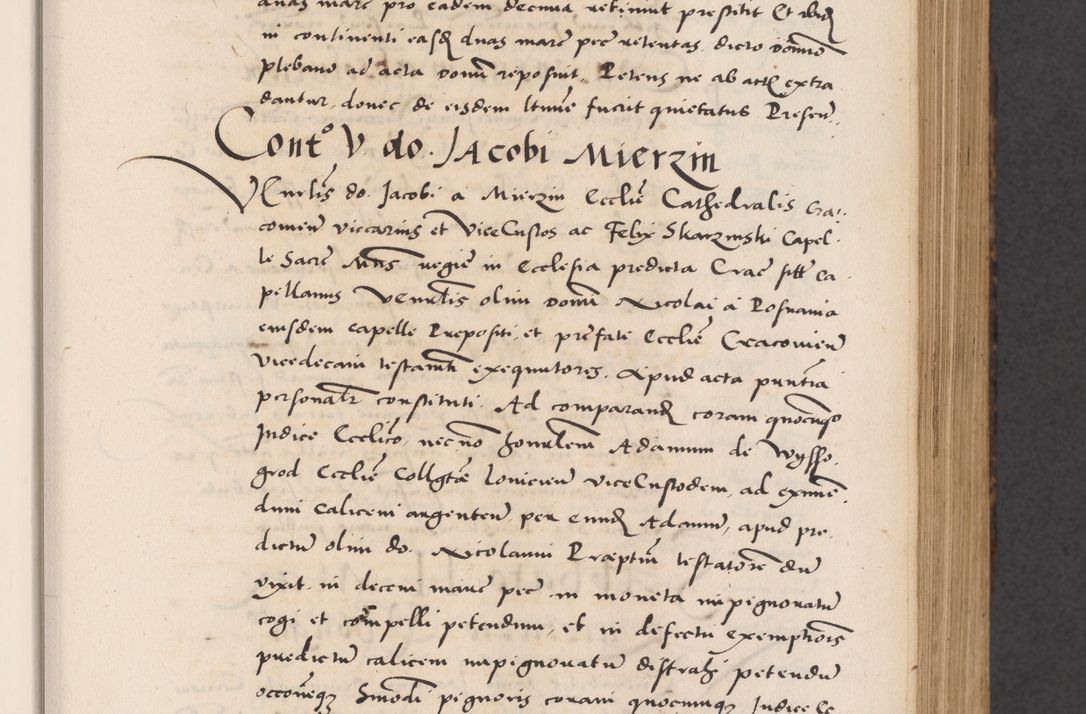 duas marc pro eadem decima retinuit prestitit Et ibid
in continenti easd duas marc pec retentas dicto domino
plebano ad acta domi reposuit. Petens ne ab actis extra
dantur, donec de eisdem ltime fuerit quietatus Presen.
Cont.o V. do. Jacobi Mierzin
VEnrlis do. Jacobi a Mierzin Ecclie Cathedralis Cra.
covien viccarius et ViceCustos ac Felix Skarzinski Capel.
le Sacre Mtis regie in Ecclesia predicta Crac sitt Ca
pellanus Venrlis olim domi Nicolai a Posnania
eiusdem capelle Prepositi, et prefate Ecclie Cracovien
vicedecani testamti exequutores. Apud acta puntia
personalr constituti. Ad comparand coram quocuqo
Judice Ecclico, nec no honrlem Adamum de Wysso.
grod Ecclie Collgtae lovicien viceCustodem, ad eximen.
dum calicem argenteum, per eund Adamu, apud pre.
dictu olim do. Nicolaum Praeptum testatore du
vixit, in decem marc pec in moneta impignoratu
cogi et compelli petendum, et in defectu exemptionis
predictu calicem impignoratu distrahi petendu
occoneqz Smodi pignoris coram quocumqz Judice Ec